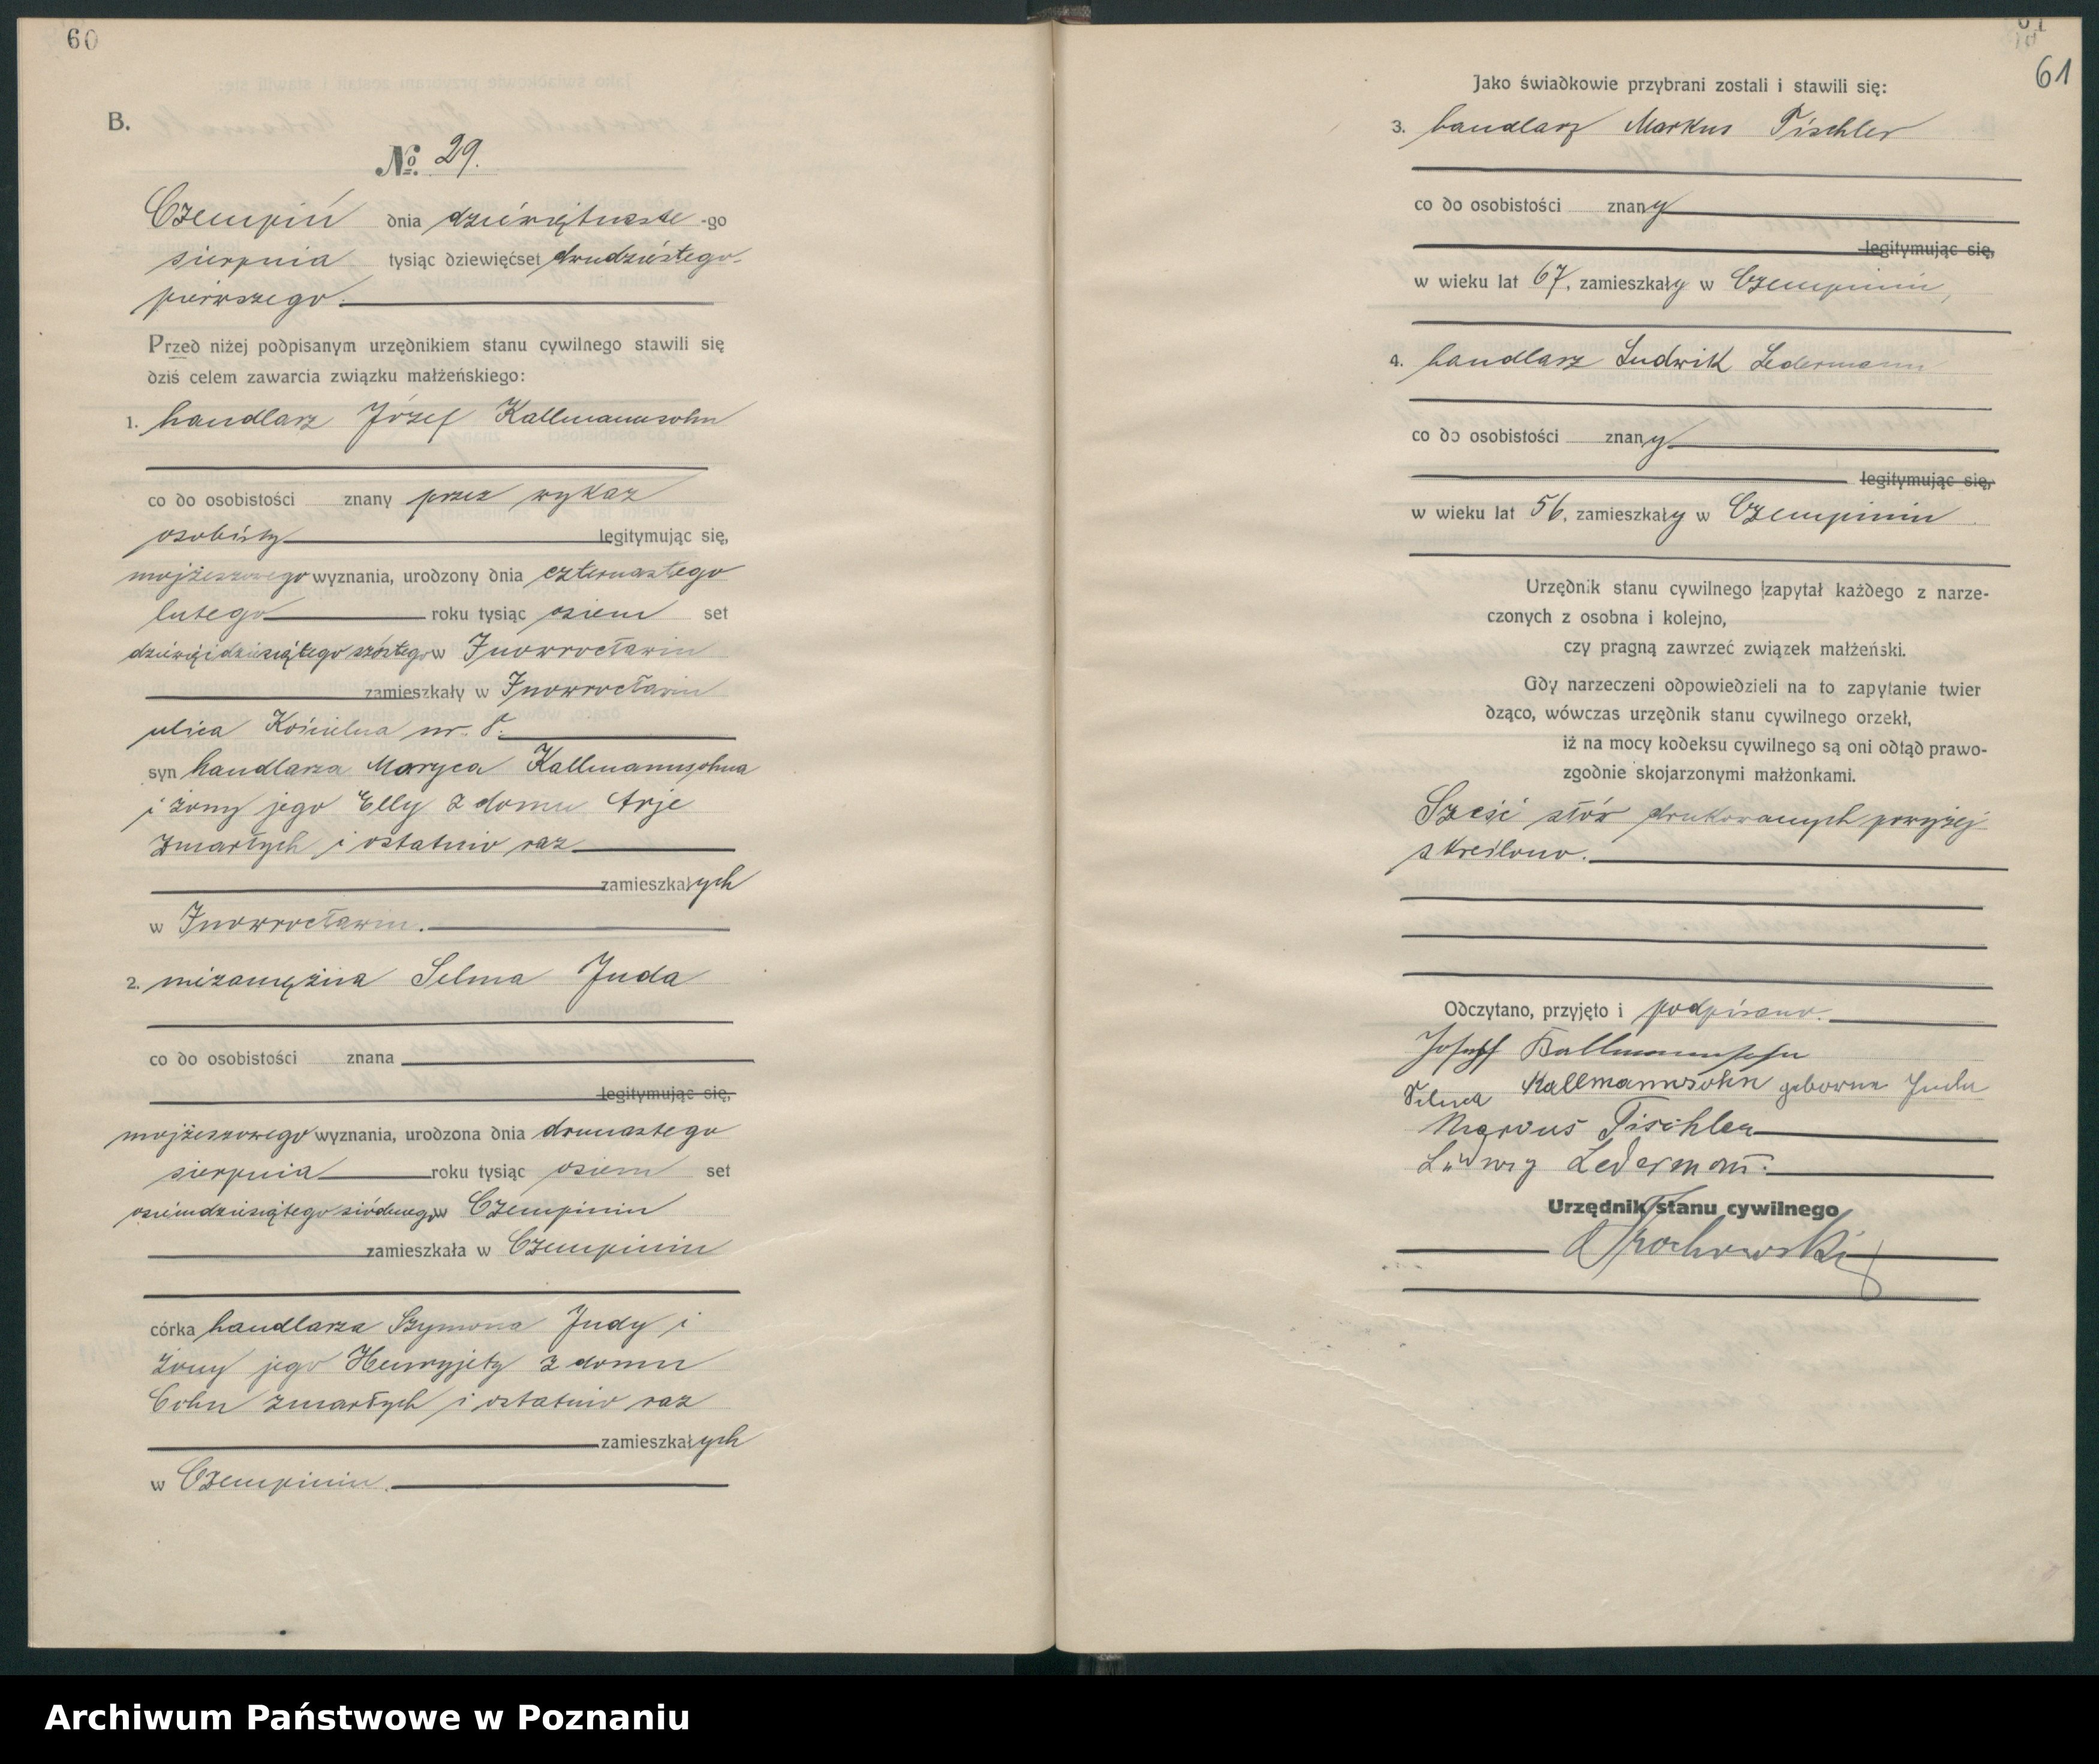 60
B.
No. 29.
Czempiń dnia dziewiętnaste -go
sierpnia tysiąc dziewięćset dwudziestego
pierwszego.
Przed niżej podpisanym urzędnikiem stanu cywilnego stawili się
dziś celem zawarcia związku małżeńskiego:
1. handlarz Józef Kallmannsohn
co do osobistości znany przez wykaz
osobisty legitymując się,
mojżeszowego wyznania, urodzony dnia czternastego
lutego roku tysiąc osiem set
dziewięćdziesiątego szóstego w Inowrocławiu
zamieszkały w Inowrocławiu
ulica Kościelna nr. 8.
syn handlarza Moryca Kallmannsohna
i żony jego Elly z domu Arje
zmarłych i ostatnio raz
zamieszkałych
w Inowrocławiu.
2. niezamężna Selma Juda
co do osobistości znana
legitymując się,
mojżeszowego wyznania, urodzona dnia dwunastego
sierpnia roku tysiąc osiem set
osiemdziesiątego siódmego w Czempiniu
zamieszkała w Czempiniu
córka handlarza Szymona Judy i
żony jego Henryjety z domu
Cohn zmarłych i ostatnio raz
zamieszkałych
w Czempiniu.
61
Jako świadkowie przybrani zostali i stawili się:
3. handlarz Markus Tischler
co do osobistości znany
legitymując się,
w wieku lat 67, zamieszkały w Czempiniu,
4. handlarz Ludwik Ledermann
co do osobistości znany
legitymując się,
w wieku lat 56, zamieszkały w Czempiniu
Urzędnik stanu cywilnego zapytał każdego z narze-
czonych z osobna i kolejno,
czy pragną zawrzeć związek małżeński.
Gdy narzeczeni odpowiedzieli na to zapytanie twier
dząco, wówczas urzędnik stanu cywilnego orzekł,
iż na mocy kodeksu cywilnego są oni odtąd prawo-
zgodnie skojarzonymi małżonkami.
Sześć słów drukowanych powyżej
skreślono.
Odczytano, przyjęto i podpisano.
Joseph Kallmannsohn
Selma Kallmannsohn geborene Juda
Marcus Tischler
Ludwig Ledermann.
Urzędnik stanu cywilnego
Archiwum Państwowe w Poznaniu